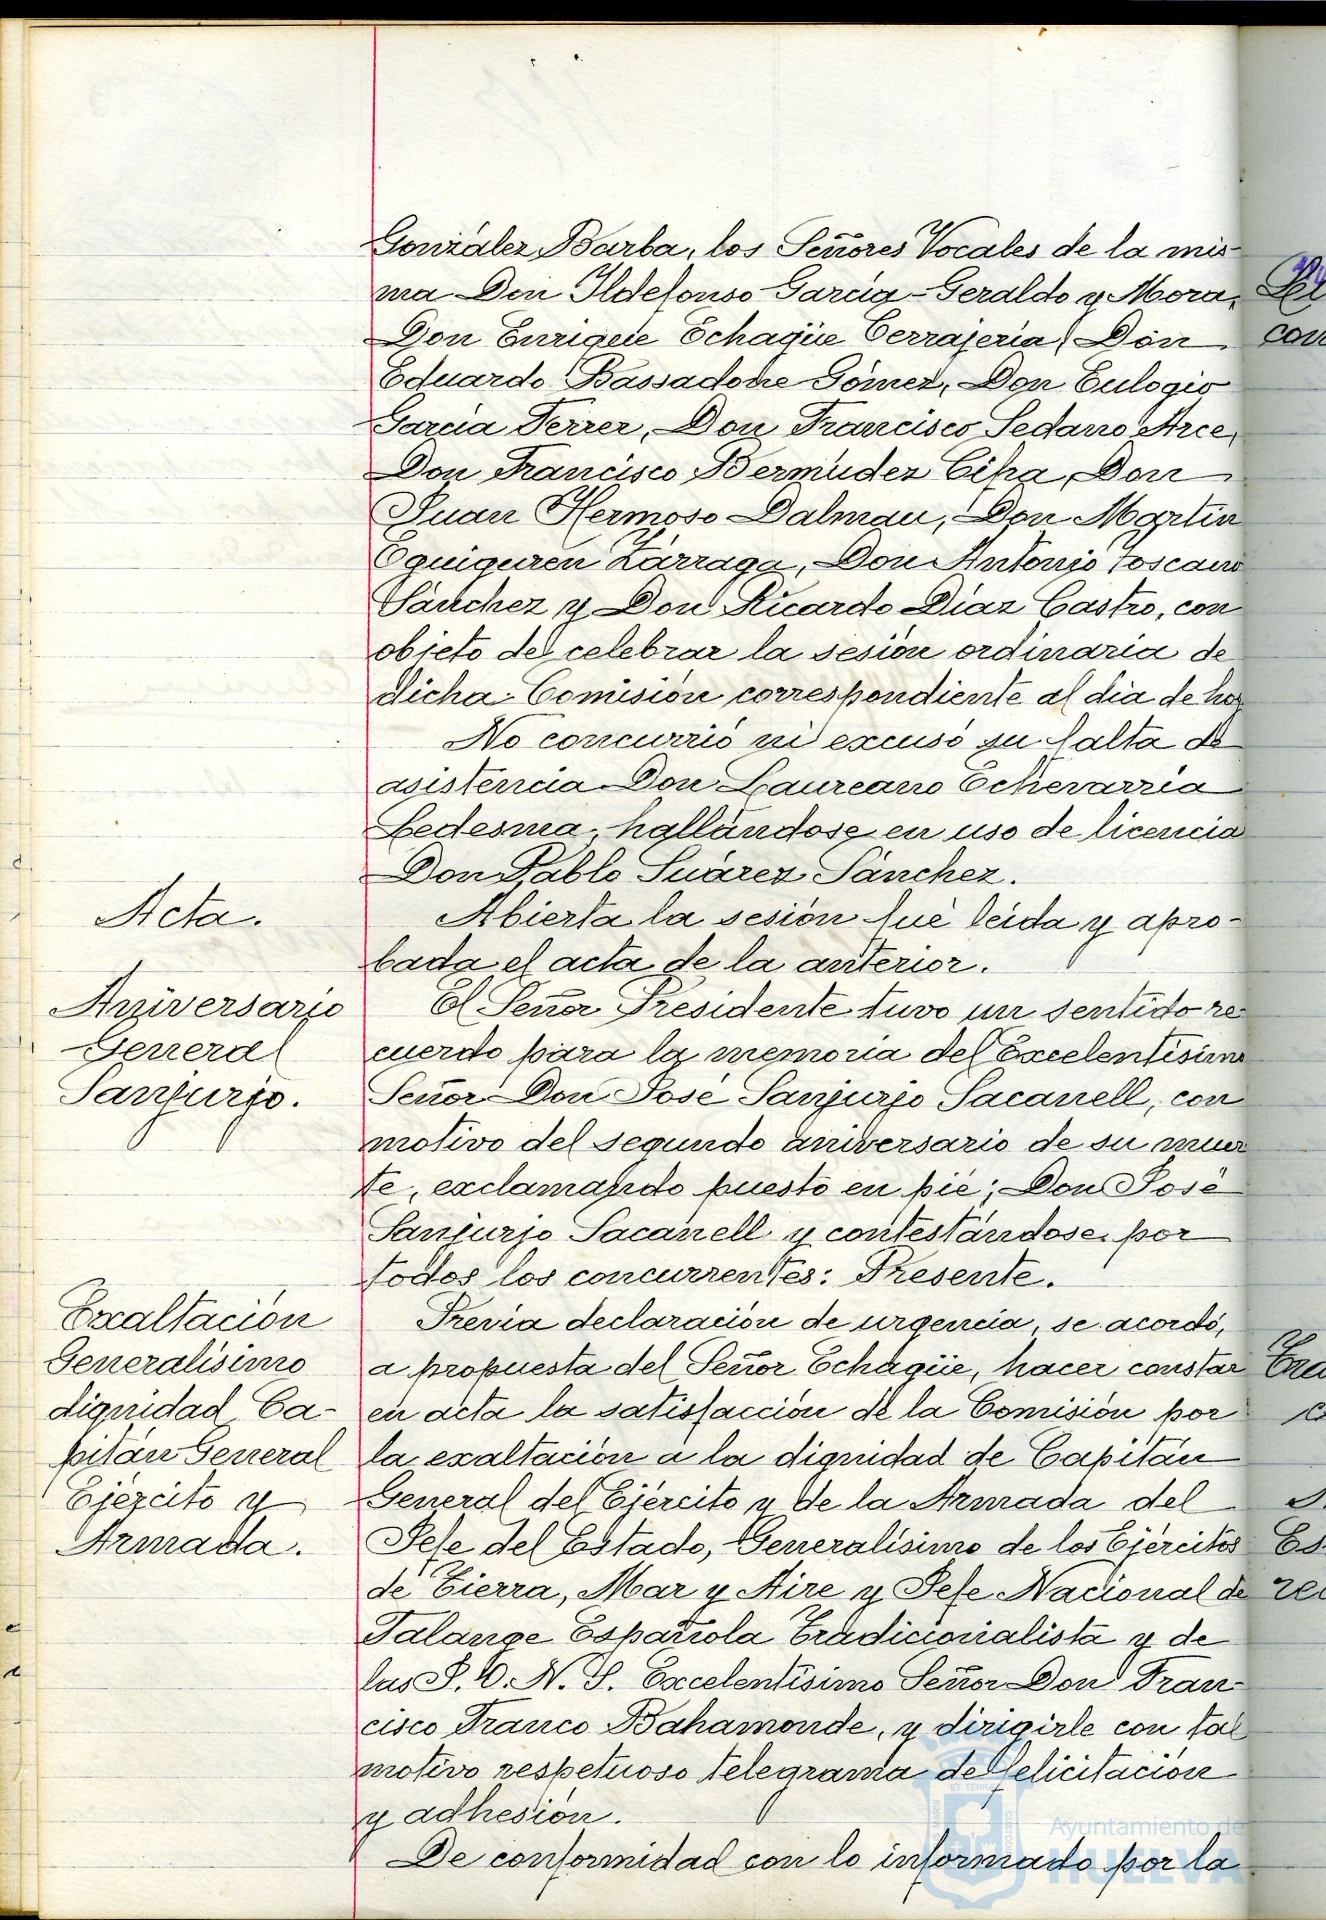 González Barba, los Señores Vocales de la mis-
ma Don Ildefonso García-Geraldo y Mora,
Don Enrique Echagüe Cerrajería, Don
Eduardo Bassadone Gómez, Don Eulogio
García Ferrer, Don Francisco Sedano Arce,
Don Francisco Bermúdez Cifra, Don
Juan Hermoso Dalmau, Don Martín
Eguiguren Zárraga, Don Antonio Toscano
Sánchez y Don Ricardo Díaz Castro, con
objeto de celebrar la sesión ordinaria de
dicha Comisión correspondiente al día de ho
No concurrió ni excusó su falta de
asistencia Don Laureano Echevarría
Ledesma, hallándose en uso de licencia
Don Pablo Suárez Sánchez.
Acta.
Abierta la sesión fué leída y apro-
bada el acta de la anterior.
Aniversario
General
Sanjurjo.
El Señor Presidente tuvo un sentido re
cuerdo para la memoria del Excelentísimo
Señor Don José Sanjurjo Sacanell, con
motivo del segundo aniversario de su muer
te, exclamando puesto en pié; Don José
Sanjurjo Sacanell y contestándose por
todos los concurrentes: Presente.
Exaltación
Generalísimo
dignidad Ca-
pitán General
Ejército y
Armada.
Previa declaración de urgencia, se acordó,
a propuesta del Señor Echagüe, hacer constar
en acta la satisfacción de la Comisión por
la exaltación a la dignidad de Capitán
General del Ejército y de la Armada del
Jefe del Estado, Generalísimo de los Ejércitos
de Tierra, Mar y Aire y Jefe Nacional de
Falange Española Tradicionalista y de
las J. O. N. S. Excelentísimo Señor Don Fran-
cisco Franco Bahamonde, y dirigirle con tal
motivo respetuoso telegrama de felicitación
y adhesión.
De conformidad con lo informado por la
Ayuntamiento de
HUELVA